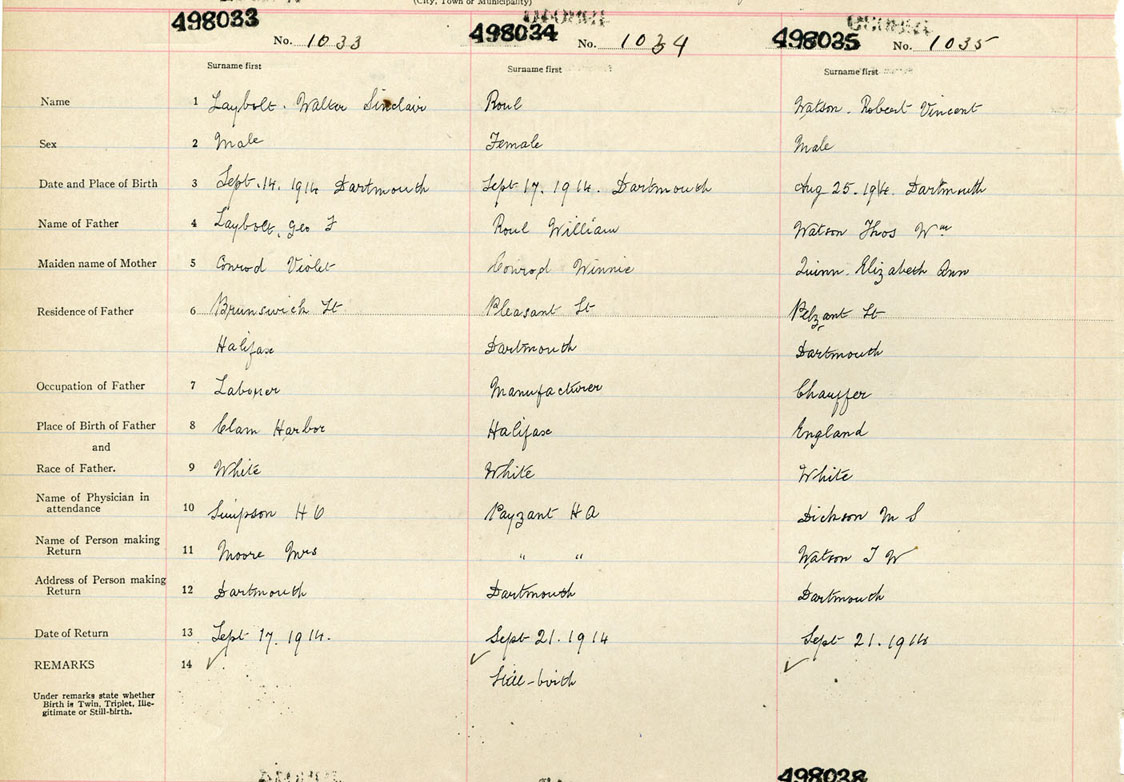 (City, Town or Municipality)
498033 498034 498035
No. 1033 No. 1034 No. 1035
Surname first Surname first Surname first
Name 1 Laybolt. Walter Sinclair Roul Watson. Robert Vincent
Sex 2 Male Female Male
Date and Place of Birth 3 Sept. 14. 1914 Dartmouth Sept 17. 1914. Dartmouth Aug 25. 1914. Dartmouth
Name of Father 4 Laybolt, Geo F Roul William Watson Thos Wm
Maiden name of Mother 5 Conrod Violet Conrod Winnie Quinn. Elizabeth Ann
Residence of Father 6 Brunswick St Pleasant St Pelzant St
Halifax Dartmouth Dartmouth
Occupation of Father 7 Laborer Manufacturer Chauffer
Place of Birth of Father 8 Clam Harbor Halifax England
and
Race of Father. 9 White White White
Name of Physician in
attendance 10 Simpson H O Payzant H A Dickson M S
Name of Person making
Return 11 Moore Mrs " " Watson T W
Address of Person making
Return 12 Dartmouth Dartmouth Dartmouth
Date of Return 13 Sept 17. 1914. Sept 21. 1914 Sept 21. 1914
REMARKS 14 ✓ ✓ ✓
Still-birth
Under remarks state whether
Birth is Twin, Triplet, Ille-
gitimate or Still-birth.
498038